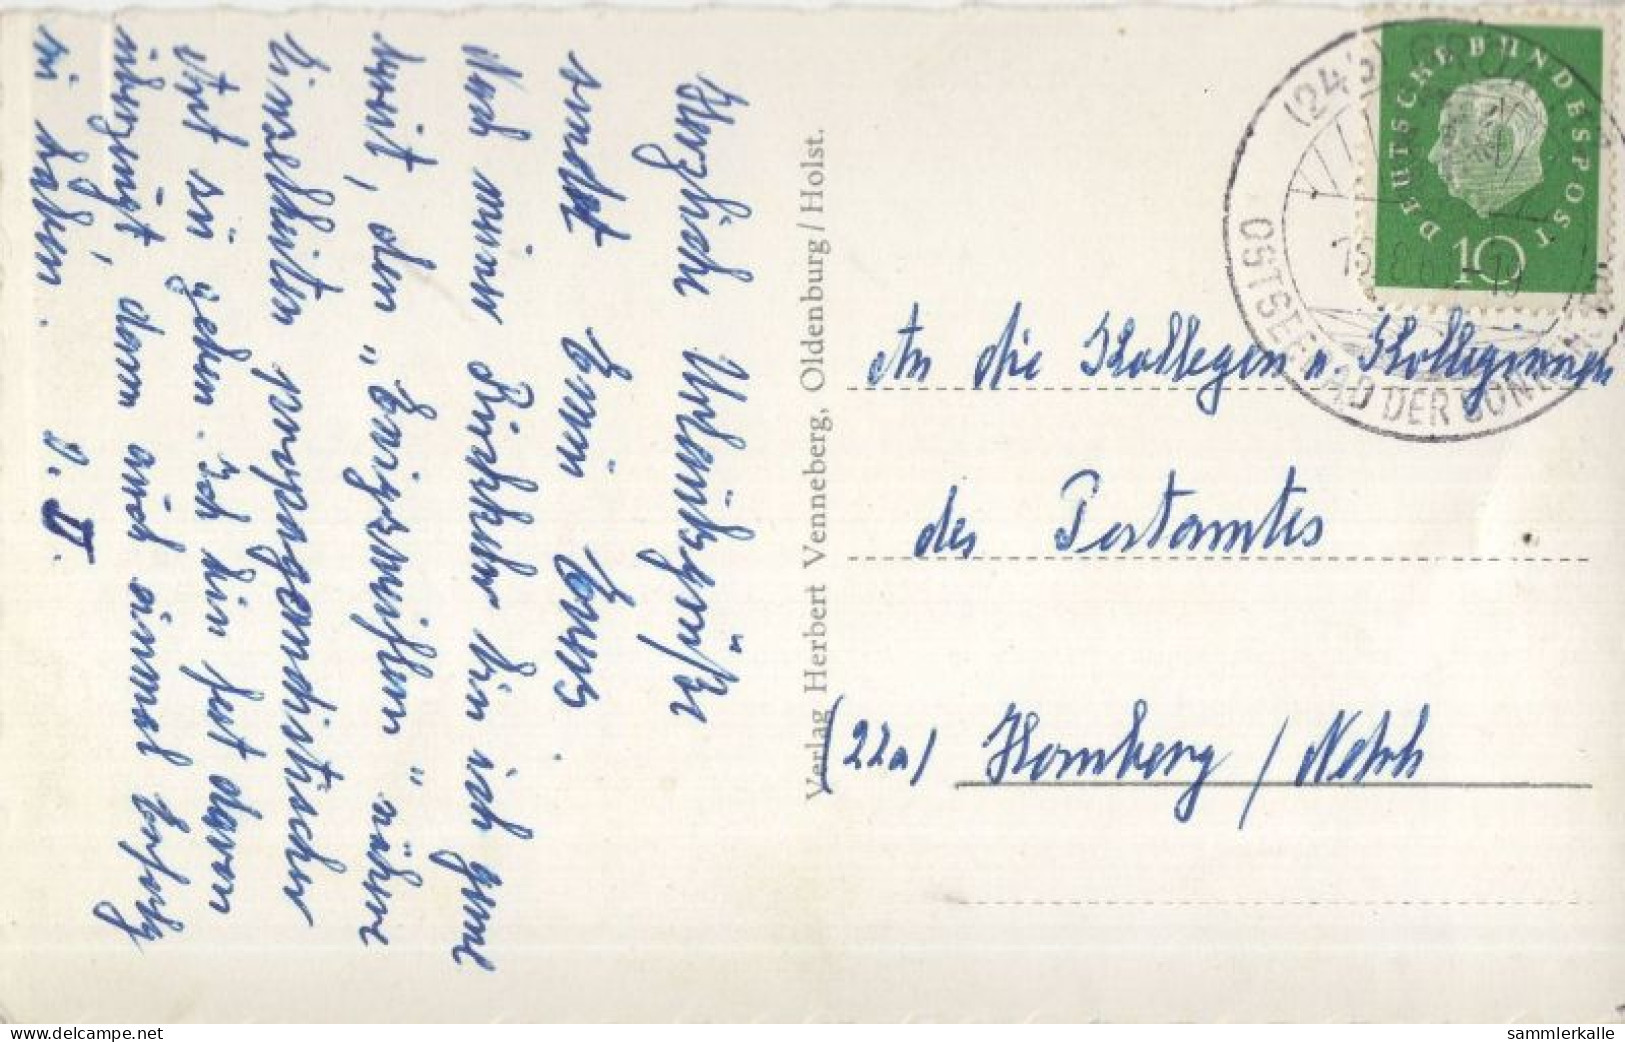 Herzliche Urlaubsgrüße
sendet Emmi
Nach meiner Rückkehr bin ich gerne
bereit, den "Ewigzweiflern" nähere
Einzelheiten propagandistischer
Art zu geben. Ich bin fest davon
überzeugt, dann auch einmal Erfolg
zu haben. D. O.
Verlag Herbert Venneberg, Oldenburg / Holst.
DEUTSCHE BUNDESPOST
10
(24b)
OSTSEEBAD DER SONNE
An die Kollegen u. Kolleginnen
des Postamtes
(22a) Homberg / Ndrh
delcampe.net
sammlerkalle